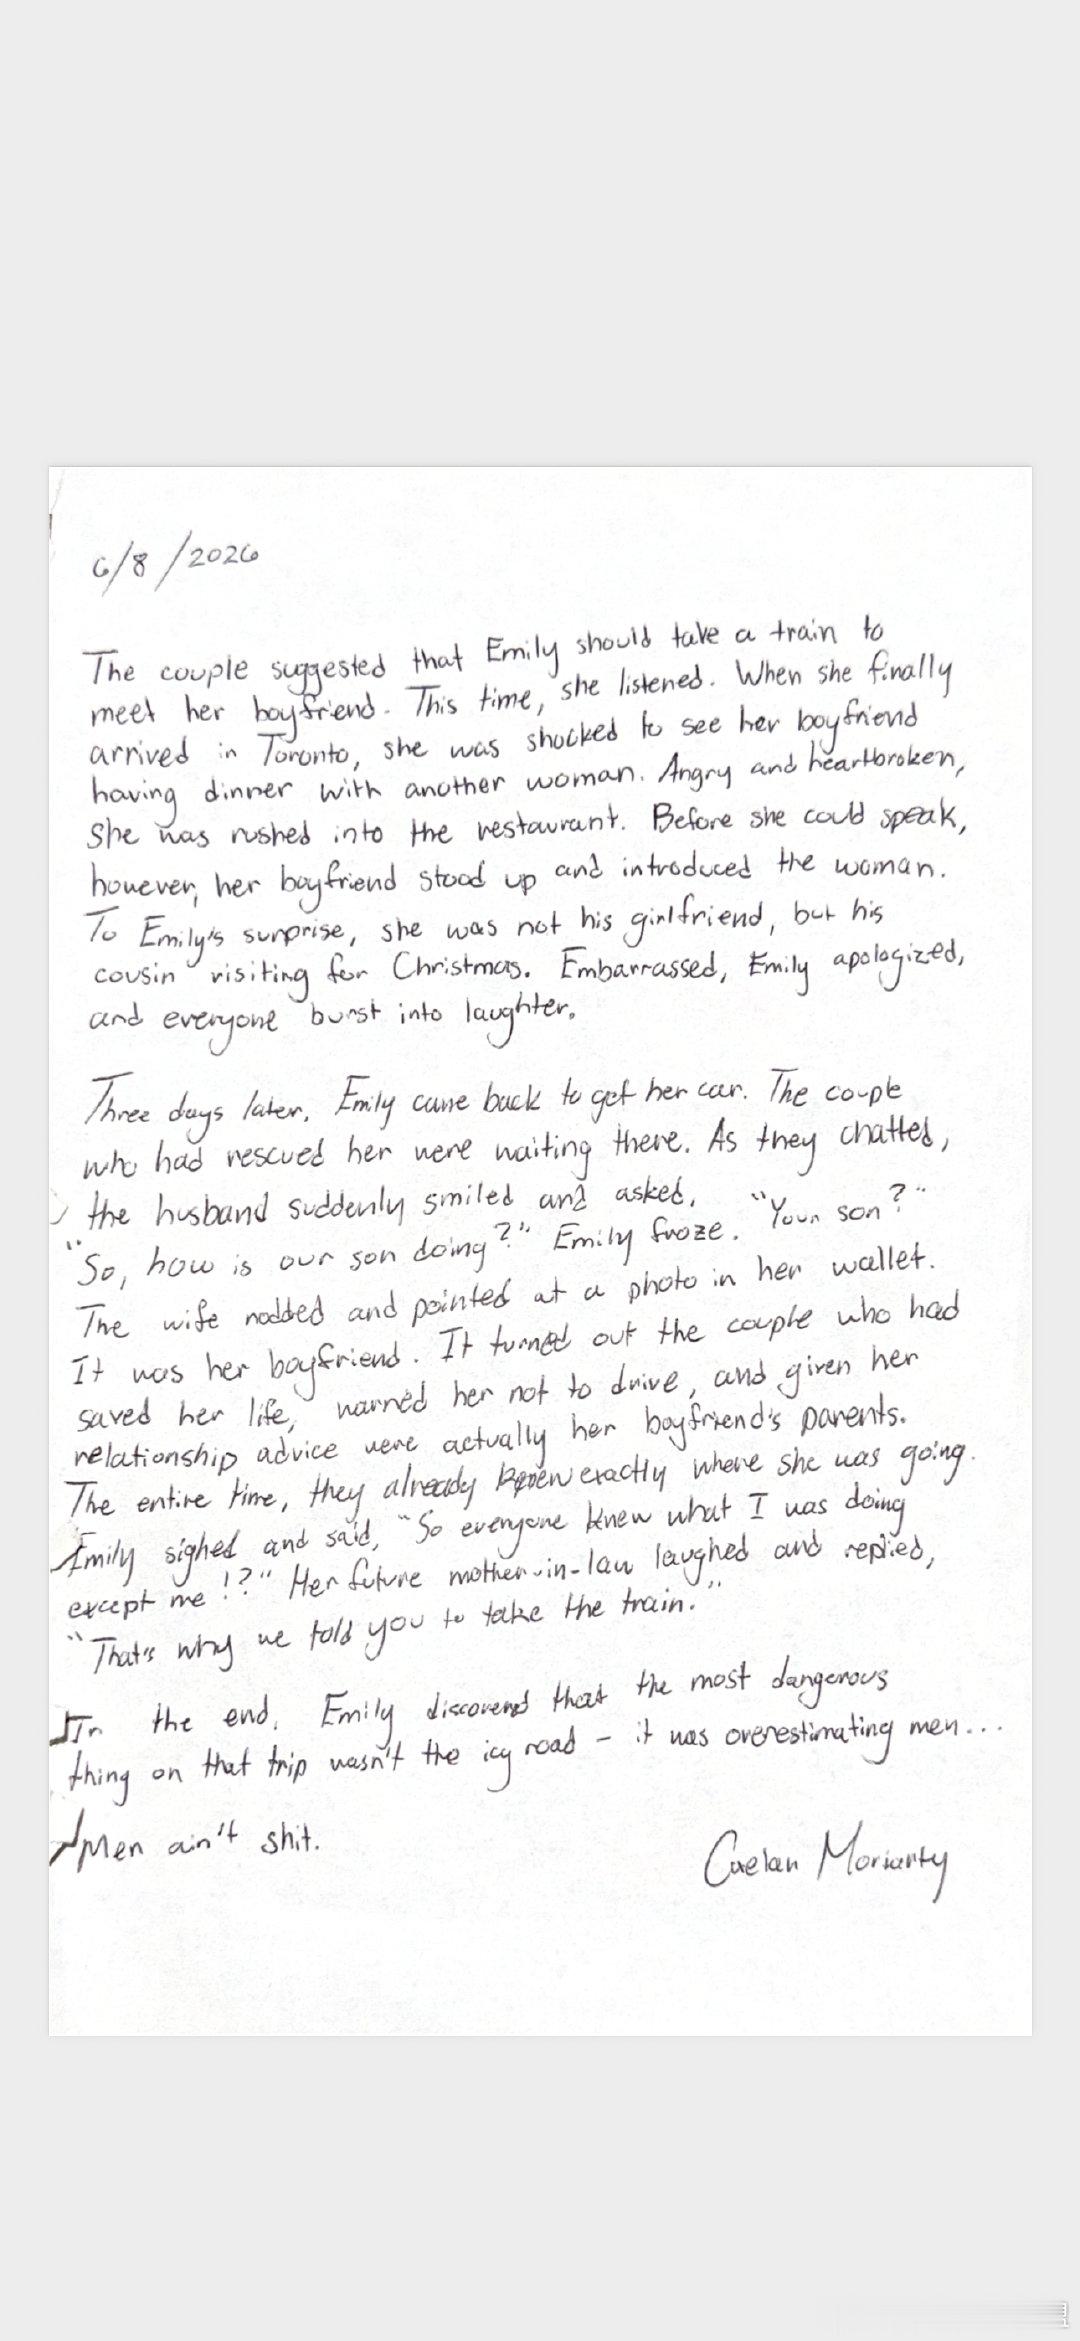 6/8/2026
The couple suggested that Emily should take a train to
meet her boyfriend. This time, she listened. When she finally
arrived in Toronto, she was shocked to see her boyfriend
having dinner with another woman. Angry and heartbroken,
She was rushed into the restaurant. Before she could speak,
however, her boyfriend stood up and introduced the woman.
To Emily's surprise, she was not his girlfriend, but his
cousin visiting for Christmas. Embarrassed, Emily apologized,
and everyone burst into laughter.
Three days later, Emily came back to get her car. The couple
who had rescued her were waiting there. As they chatted,
the husband suddenly smiled and asked,
"So, how is our son doing?" Emily froze. "Your son?"
The wife nodded and pointed at a photo in her wallet.
It was her boyfriend. It turned out the couple who had
saved her life, warned her not to drive, and given her
relationship advice were actually her boyfriend's parents.
The entire time, they already knew exactly where she was going.
Emily sighed and said, "So everyone knew what I was doing
except me!?" Her future mother-in-law laughed and replied,
"That's why we told you to take the train."
In the end, Emily discovered that the most dangerous
thing on that trip wasn't the icy road – it was overestimating men...
Men ain't shit.
Caelan Moriarty